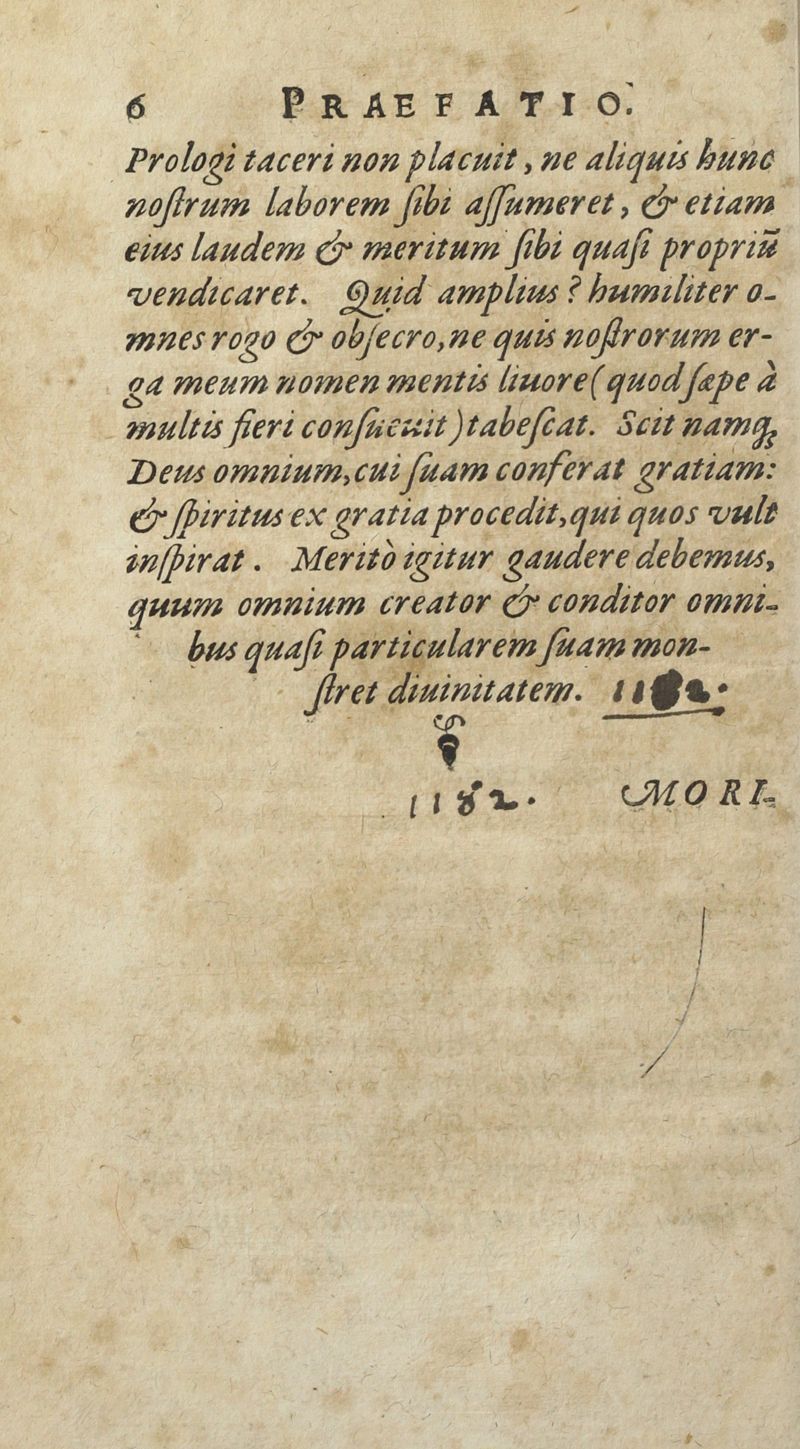 6 PRAEFATIO.
Prologi taceri non placuit, ne aliquis hunc
noſtrum laborem ſibi aſſumeret, & etiam
eius laudem & meritum ſibi quaſi propriū
vendicaret. Quid amplius? humiliter o-
mnes rogo & obſecro, ne quis noſtrorum er-
ga meum nomen mentis liuore (quod ſæpe à
multis fieri conſueuit) tabeſcat. Scit namq;
Deus omnium, cui ſuam conferat gratiam:
& ſpiritus ex gratia procedit, qui quos vult
inſpirat. Meritò igitur gaudere debemus,
quum omnium creator & conditor omni-
bus quaſi particularem ſuam mon-
ſtret diuinitatem. 1182.
1182. MORI-